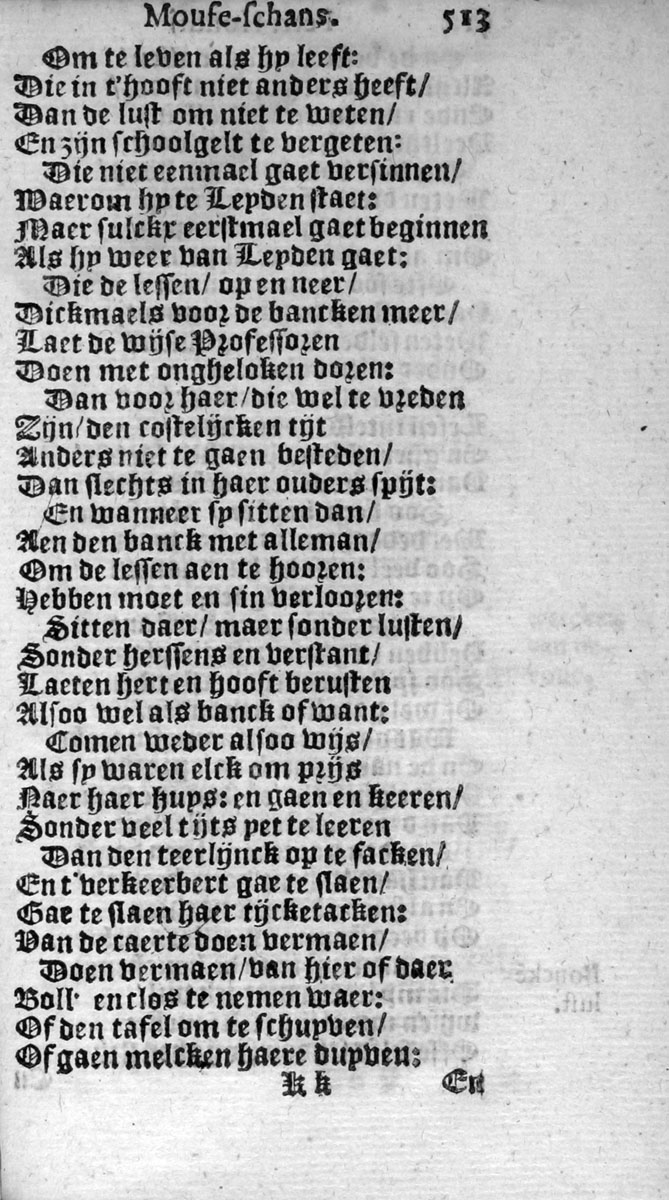 Mouse-schans. 513
Om te leven als hy leeft:
Die in t'hooft niet anders heeft/
Dan de lust om niet te weten/
En zijn schoolgelt te vergeten:
Die niet eenmael gaet versinnen/
Waerom hy te Leyden staet:
Maer sulckx eerstmael gaet beginnen
Als hy weer van Leyden gaet:
Die de lessen/ op en neer/
Dickmaels voor de bancken meer/
Laet de wijse Professoren
Doen met ongheloken doren:
Dan voor haer/die wel te vreden
Zijn/den costelijcken tijt
Anders niet te gaen besteden/
Dan slechts in haer ouders spijt:
En wanneer sy sitten dan/
Aen den banck met alleman/
Om de lessen aen te hooren:
Hebben moet en sin verlooren:
Sitten daer/ maer sonder lusten/
Sonder herssens en verstant/
Laeten hert en hooft berusten
Alsoo wel als banck of want:
Comen weder alsoo wijs/
Als sy waren elck om prijs
Naer haer huys: en gaen en keeren/
Sonder veel tijts yet te leeren
Dan den teerlijnck op te facken/
En t'verkeerbert gae te slaen/
Gae te slaen haer tijcketacken:
Van de caerte doen vermaen/
Doen vermaen/van hier of daer
Boll' en clos te nemen waer:
Of den tafel om te schuyven/
Of gaen melcken haere duyven:
K k En